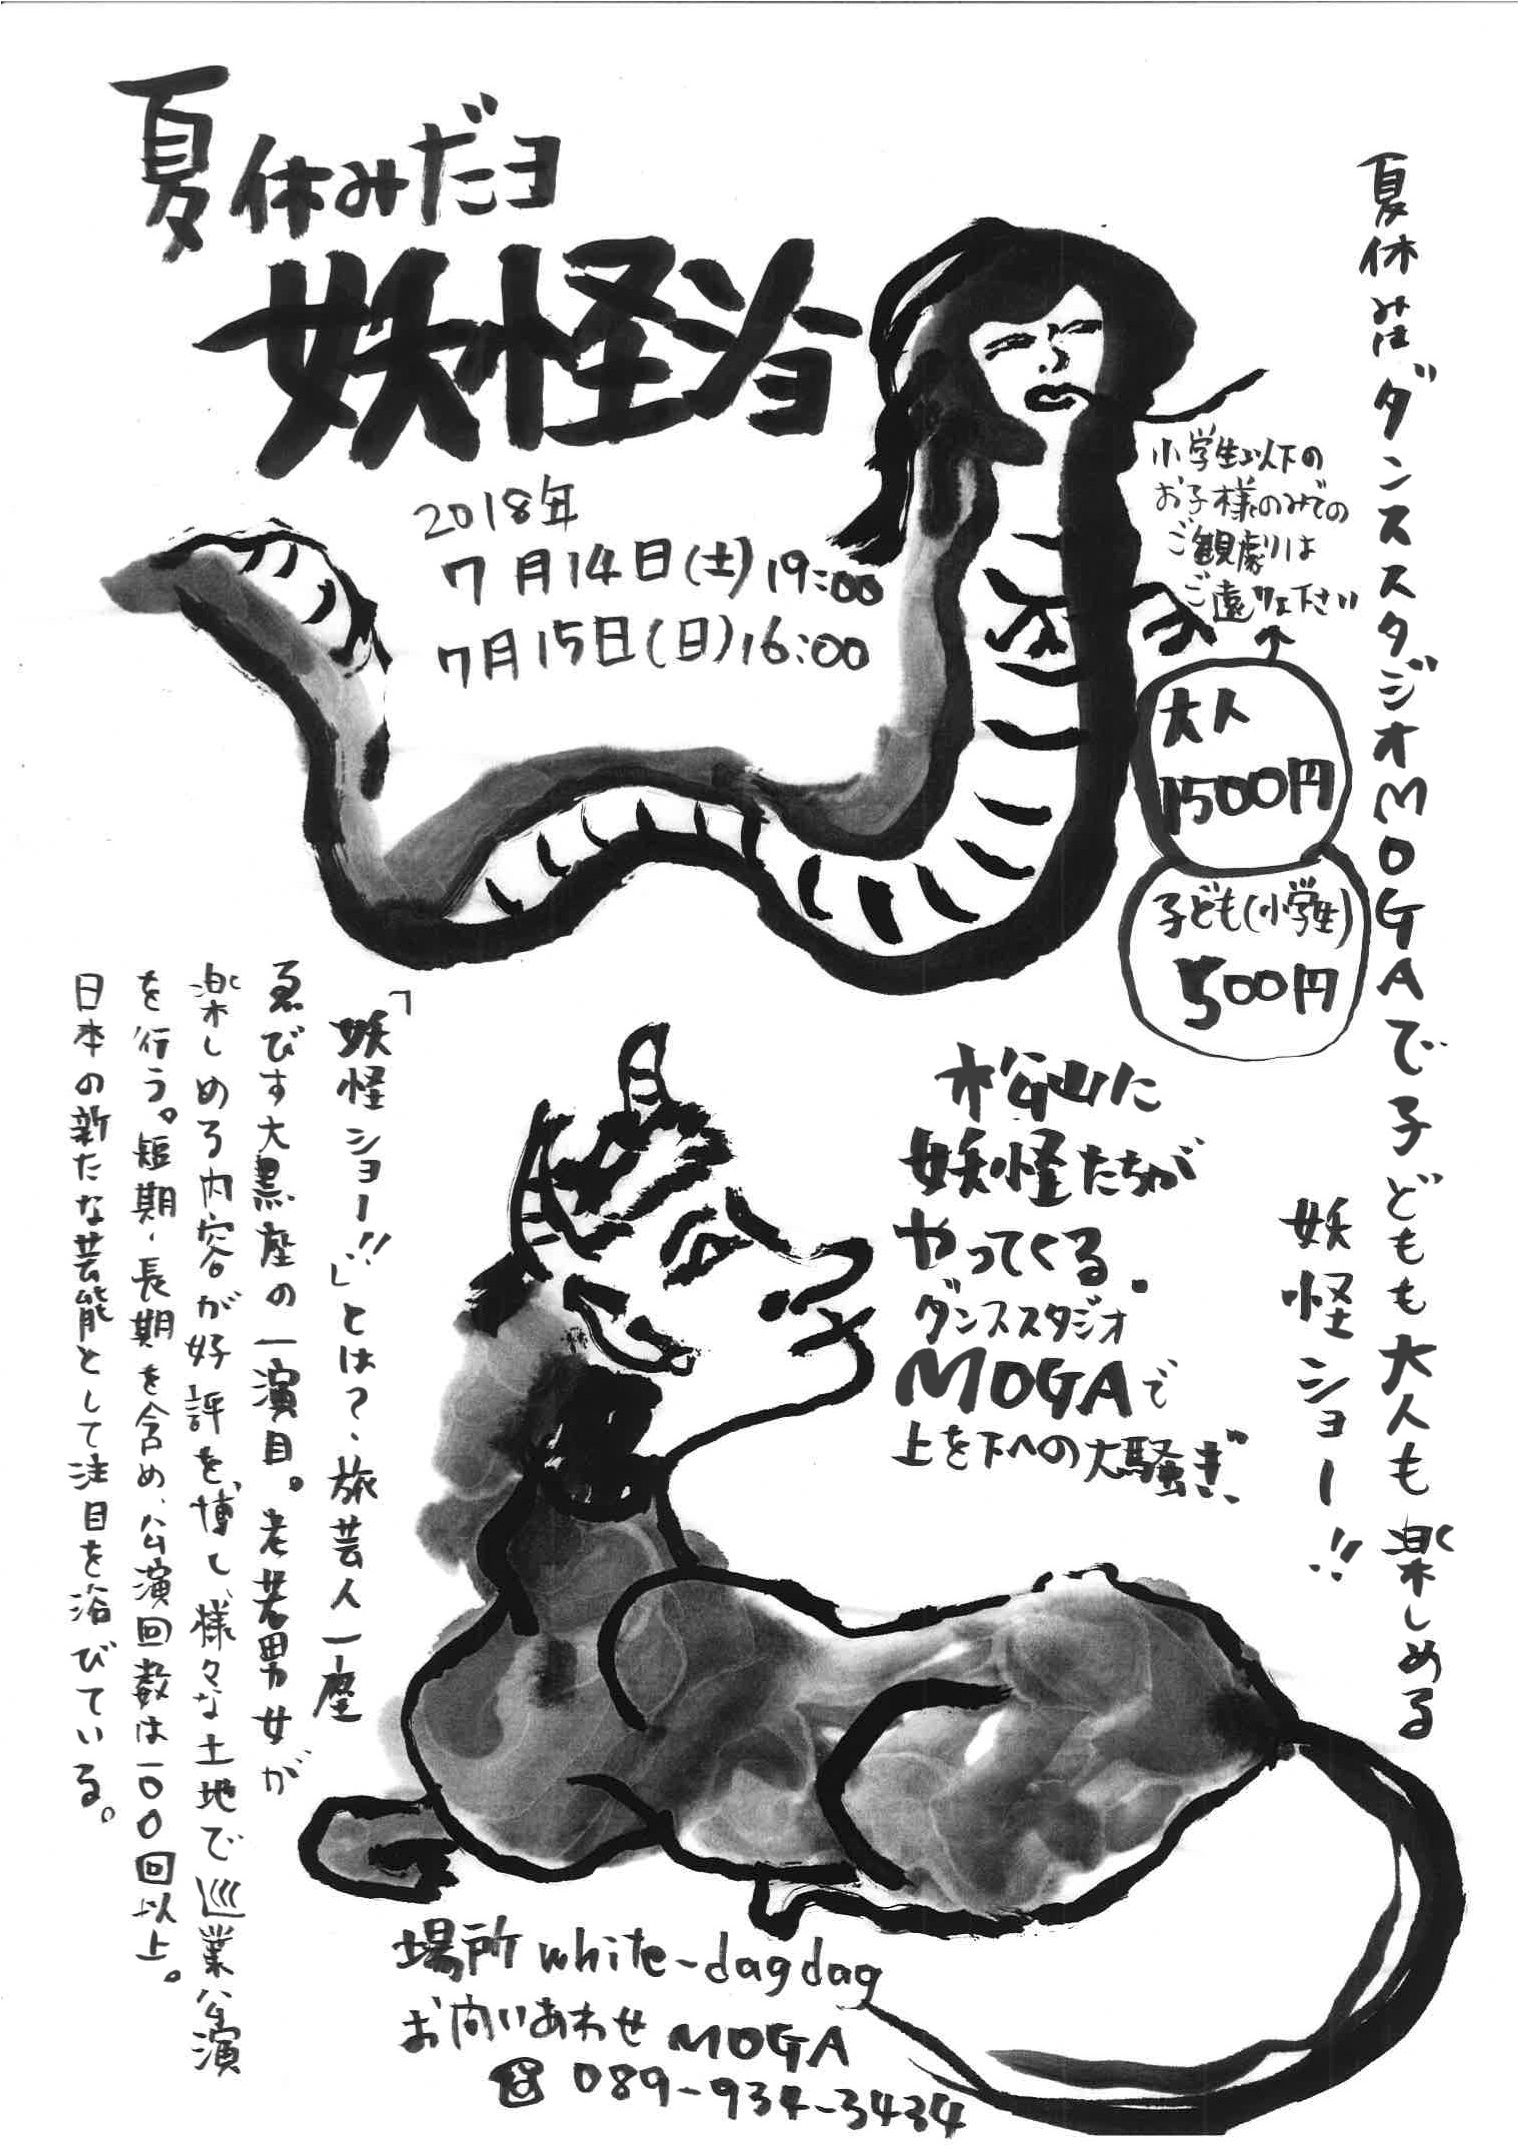 夏休みだヨ
妖怪ショー
2018年
7月14日(土)19:00
7月15日(日)16:00
夏休みはダンススタジオMOGAで子どもも大人も楽しめる
妖怪ショー!!
小学生以下の
お子様のみでの
ご観劇は
ご遠りょ下さい
大人
1500円
子ども(小学生)
500円
松山に
妖怪たちが
やってくる.
ダンススタジオ
MOGAで
上を下への大騒ぎ.
「妖怪ショー!!」とは?、旅芸人一座
ゑびす大黒座の一演目。老若男女が
楽しめる内容が好評を博し、様々な土地で巡業公演
を行う。短期・長期を含め、公演回数は一00回以上。
日本の新たな芸能として注目を浴びている。
場所 white-dagdag
お問いあわせ MOGA
☎ 089-934-3434